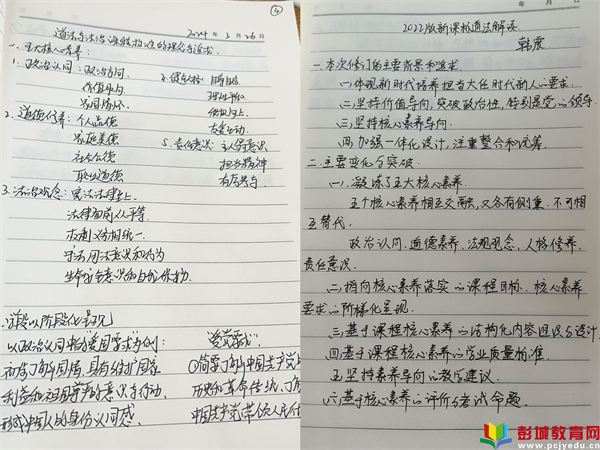 ④
道德与法治课程标准的理念与追求 2024年3月26日
一.五大核心素养:
1.政治认同:政治方向
价值取向
家国情怀
2.道德修养:个人品德
家庭美德
社会公德
职业道德
3.法治观念:宪法法律至上
法律面前人人平等
权利义务相统一
守法用法意识和行为
生命安全意识和自我保护
4.健全人格:
理性平和
积极向上
友爱互助
5.责任意识:主人翁意识
担当精神
有序参与
学段以阶段化呈现
以政治认同中热爱祖国要求为例:
初步了解国情,具有维护国家
利益和祖国尊严的意识与行动,
形成中国人的身份认同感
①简要了解中国共产党
历史和革命传统,了解
中国共产党带领人民
年 月 日
2022版新课标道法解读
韩震
一.本次修订的主要背景和追求
(一)体现新时代培养担当大任时代新人的要求.
(二)坚持价值导向,突破政治性,特别是党的领导
(三)坚持核心素养导向.
(四)加强一体化设计,注重整合和统筹.
二.主要变化与突破
(一).凝炼了五大核心素养.
五个核心素养相互交融,又各有侧重,不可相
互替代.
政治认同.道德素养.法规观念.人格修养.
责任意识.
(二)指向核心素养落实的课程目标.核心素养
要求的阶梯化呈现.
(三)基于课程核心素养的结构化内容组织与设计.
(四)基于课程核心素养的学业质量标准.
(五)坚持素养导向的教学建议.
(六)基于核心素养的评价与考试命题.
彭城教育网
www.pcjyedu.cn